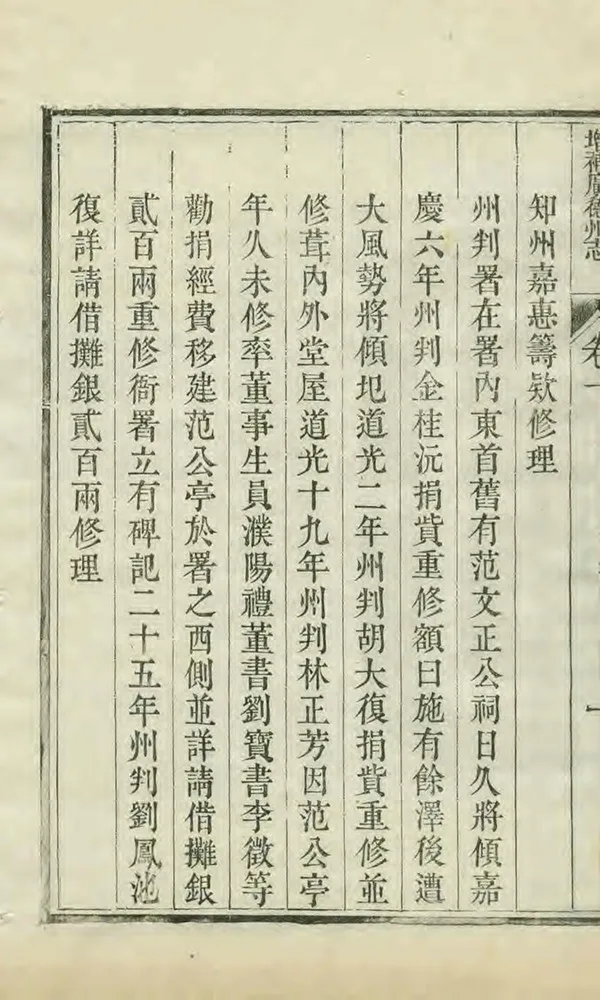 增補廣德州志
卷一
知州嘉惠籌欵修理
州判署在署內東首舊有范文正公祠日久將傾嘉
慶六年州判金桂沅捐貲重修額曰施有餘澤後遭
大風勢將傾圯道光二年州判胡大復捐貲重修並
修葺內外堂屋道光十九年州判林正芳因范公亭
年久未修率董事生員濮陽禮董書劉寶書李徵等
勸捐經費移建范公亭於署之西側並詳請借攤銀
貳百兩重修衙署立有碑記二十五年州判劉鳳池
復詳請借攤銀貳百兩修理